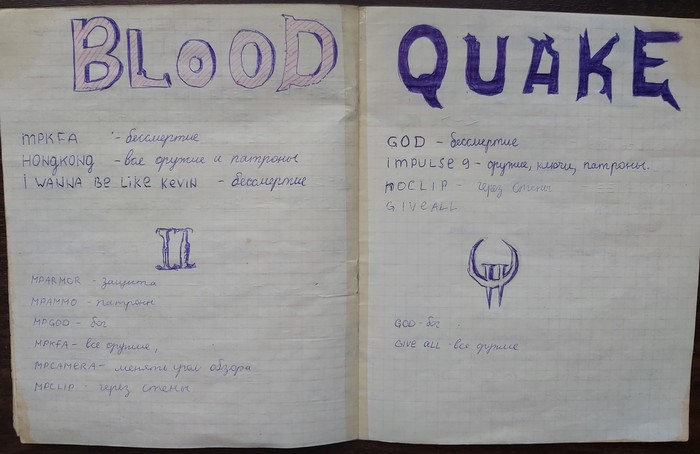 BLOOD
MPKFA - бессмертие
HONGKONG - все оружие и патроны
I WANNA Be LiKe KEVIN - бессмертие
II
MPARMOR - защита
MPAMMO - патроны
MPGOD - бог
MPKFA - все оружие,
MPCAMERA - менять угол обзора
MPCLIP - через стены
QUAKE
GOD - бессмертие
IMPULSE 9 - оружие, ключи, патроны.
NOCLIP - через стены
GIVEALL
II
GOD - бог
GIVE ALL - все оружие